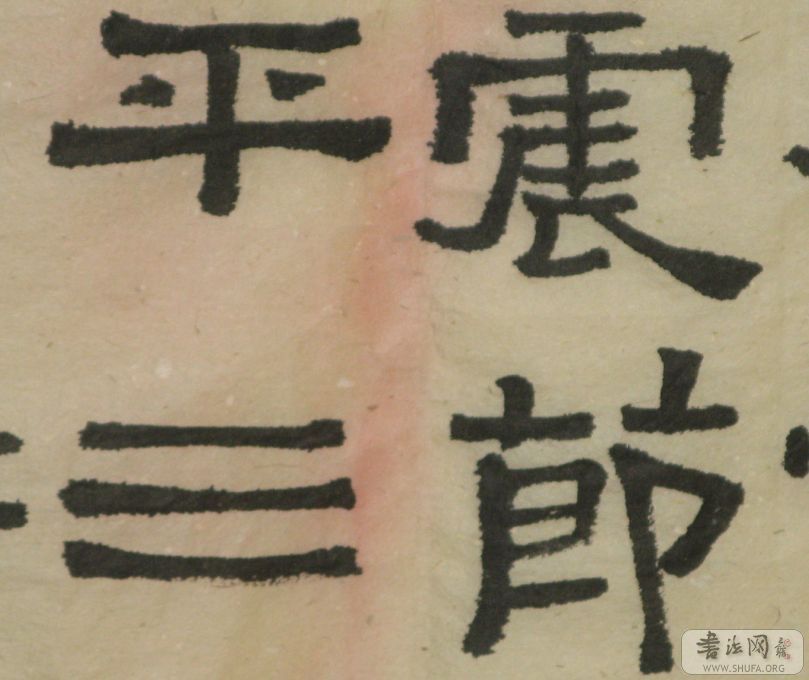 震節
平三
書法网
WWW.SHUFA.ORG